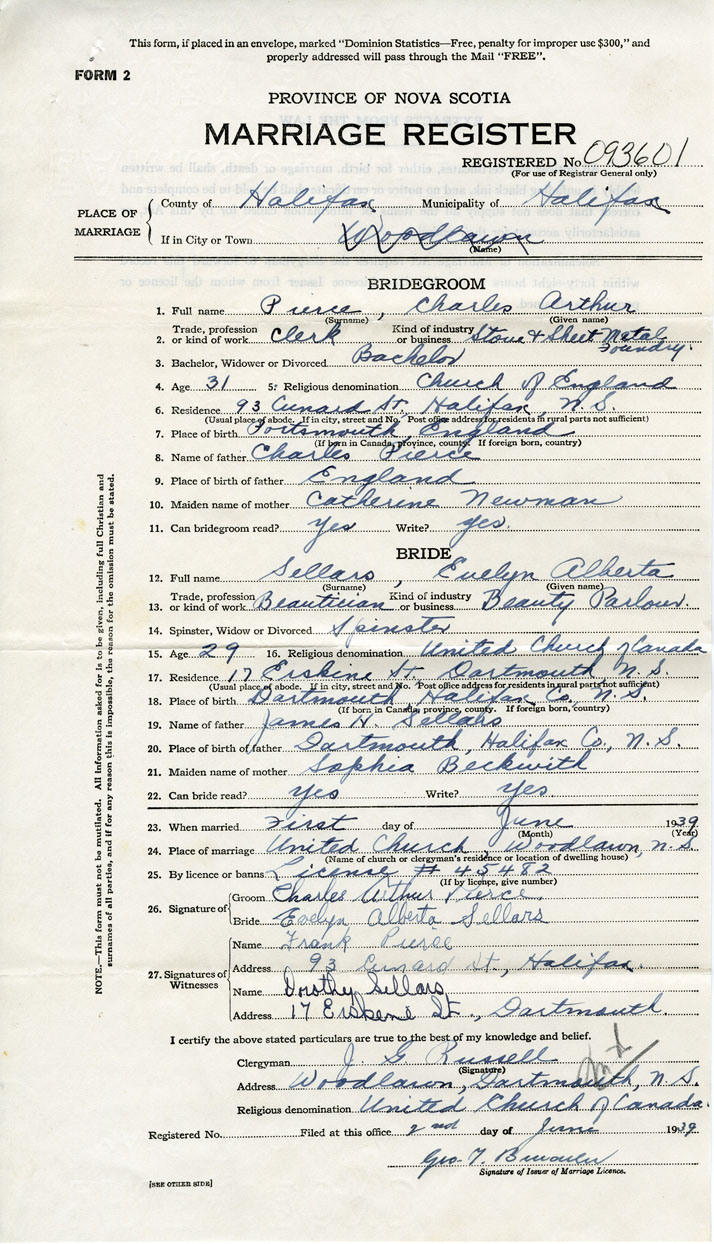 This form, if placed in an envelope, marked "Dominion Statistics—Free, penalty for improper use $300," and
properly addressed will pass through the Mail "FREE".
FORM 2
PROVINCE OF NOVA SCOTIA
MARRIAGE REGISTER
REGISTERED No. 093601
(For use of Registrar General only)
PLACE OF MARRIAGE
County of Halifax Municipality of Halifax
If in City or Town Woodlawn
(Name)
BRIDEGROOM
1. Full name Pierce, Charles Arthur
(Surname) (Given name)
2. Trade, profession or kind of work Clerk Kind of industry or business Stove & Sheet Metal Foundry.
3. Bachelor, Widower or Divorced Bachelor
4. Age 31 5. Religious denomination Church of England
6. Residence 93 Cunard St. Halifax, N.S.
(Usual place of abode. If in city, street and No. Post office address for residents in rural parts not sufficient)
7. Place of birth Portsmouth, England
(If born in Canada, province, county. If foreign born, country)
8. Name of father Charles Pierce
9. Place of birth of father England
10. Maiden name of mother Catherine Newman
11. Can bridegroom read? yes Write? yes.
BRIDE
12. Full name Sellars, Evelyn Alberta
(Surname) (Given name)
13. Trade, profession or kind of work Beautician Kind of industry or business Beauty Parlour.
14. Spinster, Widow or Divorced Spinster
15. Age 29 16. Religious denomination United Church of Canada
17. Residence 17 Erskine St. Dartmouth N.S.
(Usual place of abode. If in city, street and No. Post office address for residents in rural parts not sufficient)
18. Place of birth Dartmouth, Halifax Co., N.S.
(If born in Canada, province, county. If foreign born, country)
19. Name of father James H. Sellars
20. Place of birth of father Dartmouth, Halifax Co., N.S.
21. Maiden name of mother Sophia Beckwith
22. Can bride read? yes Write? Yes.
23. When married First day of June 1939
(Month) (Year)
24. Place of marriage United Church, Woodlawn, N.S.
(Name of church or clergyman's residence or location of dwelling house)
25. By licence or banns License # 45482
(If by licence, give number)
26. Signature of
Groom Charles Arthur Pierce.
Bride Evelyn Alberta Sellars
27. Signatures of Witnesses
Name Frank Pierce
Address 93 Cunard St., Halifax.
Name Dorothy Sellars
Address 17 Erskene St., Dartmouth.
I certify the above stated particulars are true to the best of my knowledge and belief.
Clergyman J. G. Russell
(Signature)
Address Woodlawn, Dartmouth, N.S.
Religious denomination United Church of Canada.
Registered No. Filed at this office 2nd day of June 1939.
Geo. T.
Signature of Issuer of Marriage Licence.
[SEE OTHER SIDE]
NOTE.—This form must not be mutilated. All information asked for is to be given, including full Christian and
surnames of all parties, and if for any reason this is impossible, the reason for the omission must be stated.